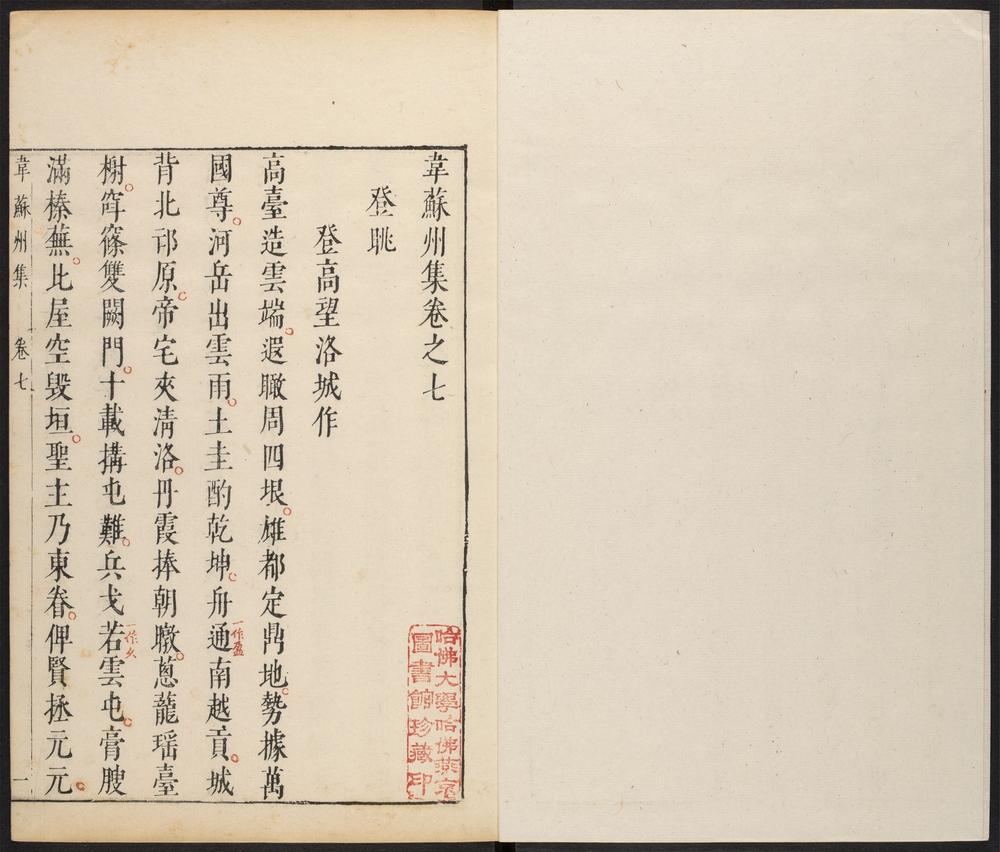 韋蘇州集卷之七
登眺
登高望洛城作
高臺造雲端遐瞰周四垠雄都定鼎地勢據萬
國尊河岳出雲雨土圭酌乾坤舟通南越貢城
一作盈
背北邙原帝宅夾清洛丹霞捧朝暾蔥蘢瑶臺
榭窂篠雙闕門十載搆屯難兵戈若雲屯膏腴
一作久
滿榛蕪比屋空毀垣聖主乃東眷俾賢拯元元
韋蘇州集 卷七 一
哈佛大學哈佛燕京
圖書館珍藏印